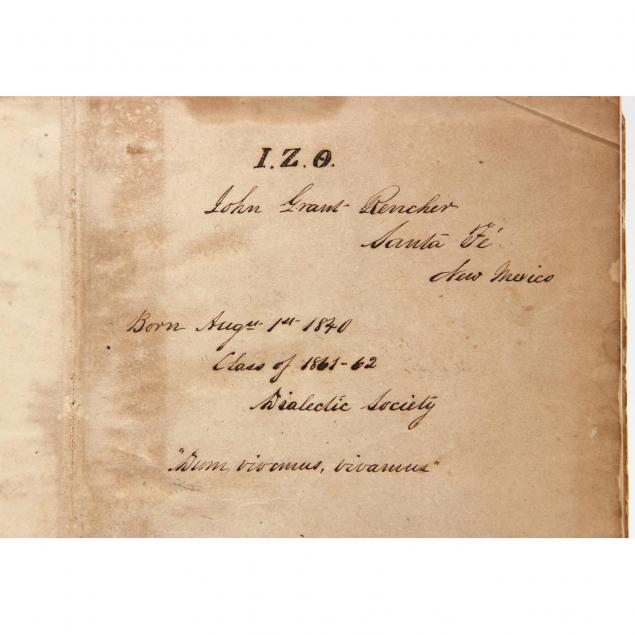 I.Z.Θ.
John Grant Rencher
Santa Fé
New Mexico
Born Augst 1st 1840
Class of 1861-62
Dialectic Society
"Dum vivimus, vivamus"